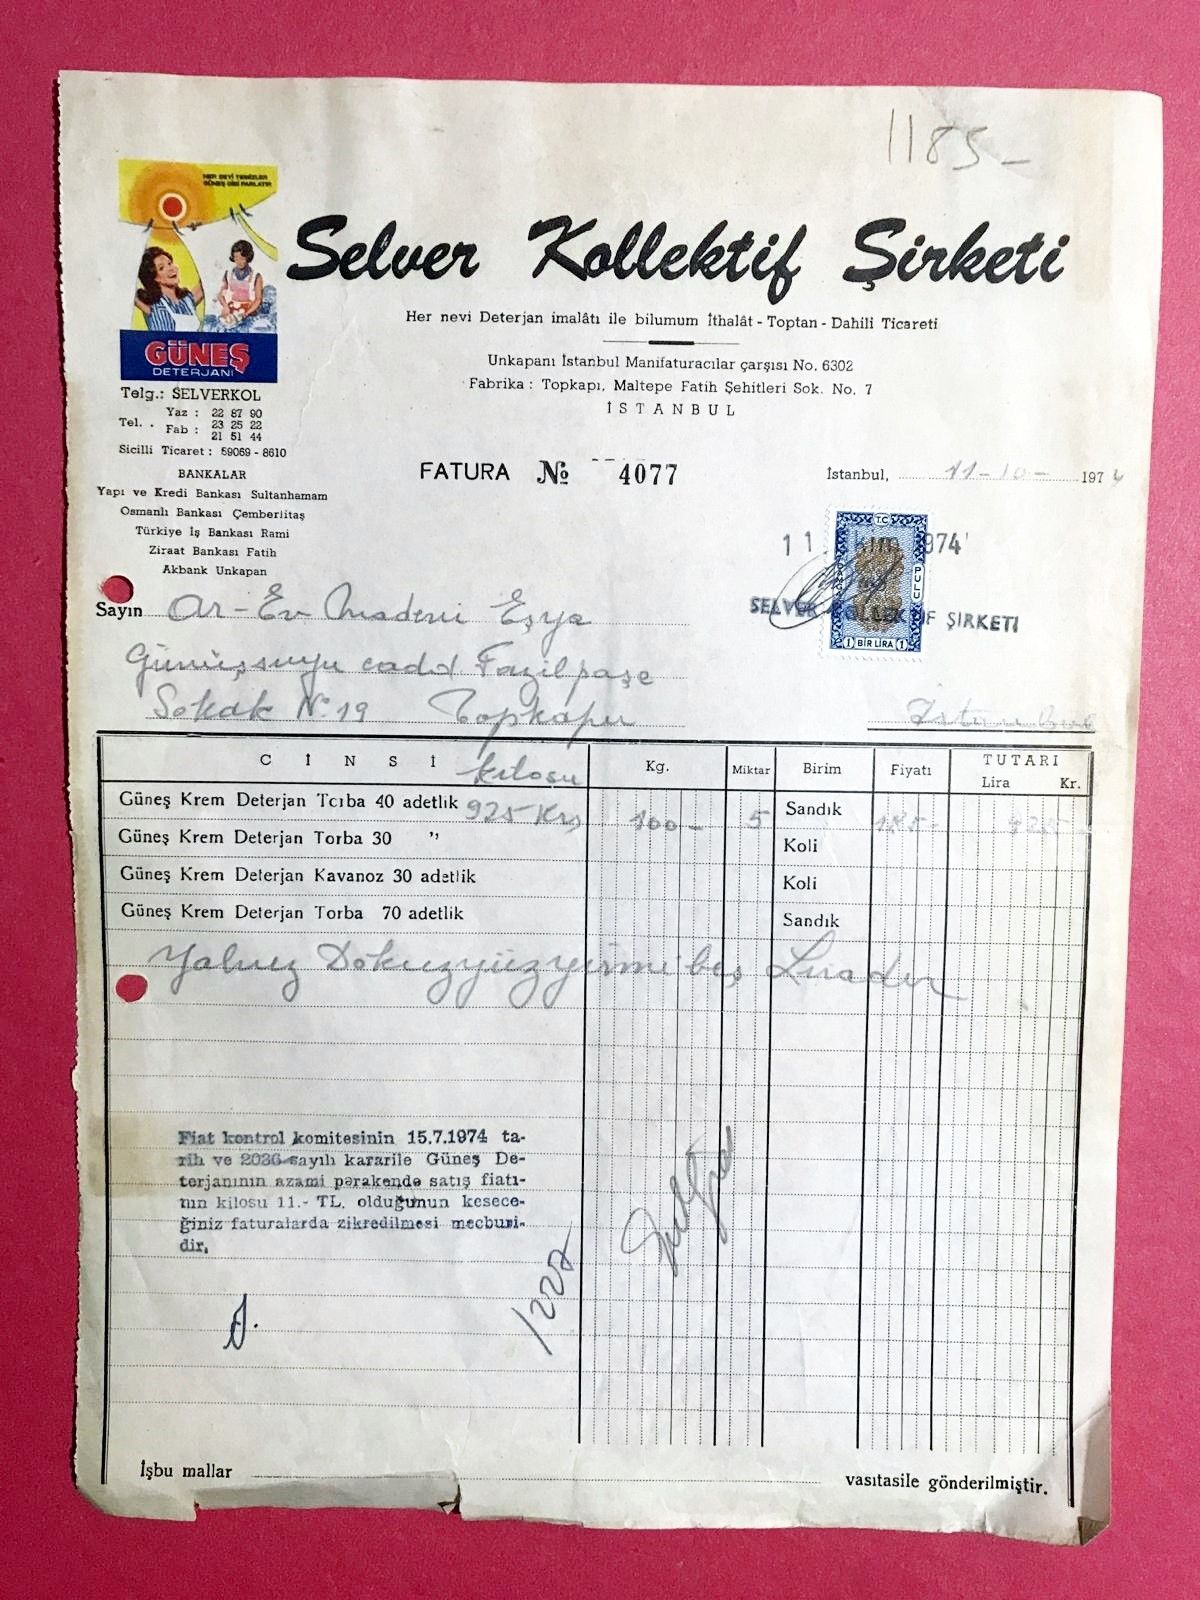 1185-
HER ŞEYİ TEMİZLER
GÜNEŞ GİBİ PARLATIR
GÜNEŞ
DETERJANI
Selver Kollektif Şirketi
Her nevi Deterjan imalâtı ile bilumum İthalât - Toptan - Dahili Ticareti
Unkapanı İstanbul Manifaturacılar çarşısı No. 6302
Fabrika : Topkapı, Maltepe Fatih Şehitleri Sok. No. 7
İSTANBUL
Telg.: SELVERKOL
Tel. . Yaz : 22 87 90
Fab : 23 25 22
21 51 44
Sicilli Ticaret : 59069 - 8610
BANKALAR
Yapı ve Kredi Bankası Sultanhamam
Osmanlı Bankası Çemberlitaş
Türkiye İş Bankası Rami
Ziraat Bankası Fatih
Akbank Unkapan
FATURA № 4077
İstanbul, 11-10- 1974
T.C
PULU
1 BİR LİRA 1
11 974
SELVER KOLLEKTİF ŞİRKETİ
Sayın Ar-Ev Madeni Eşya
Gümüşsuyu cadd Fazılpaşa
Sokak No 19 Topkapı
İstanbul
CİNSİ kilosu Kg. Miktar Birim Fiyatı TUTARI
Lira Kr.
Güneş Krem Deterjan Torba 40 adetlik 925 Krş 100- 5 Sandık 185- 925
Güneş Krem Deterjan Torba 30 " Koli
Güneş Krem Deterjan Kavanoz 30 adetlik Koli
Güneş Krem Deterjan Torba 70 adetlik Sandık
Yalnız Dokuzyüzyirmibeş Liradır
Fiat kontrol komitesinin 15.7.1974 ta-
rih ve 2036 sayılı kararile Güneş De-
terjanının azami perakende satış fiatı-
nın kilosu 11.- TL. olduğunun kesece-
ğiniz faturalarda zikredilmesi mecburi-
dir.
İşbu mallar vasıtasile gönderilmiştir.